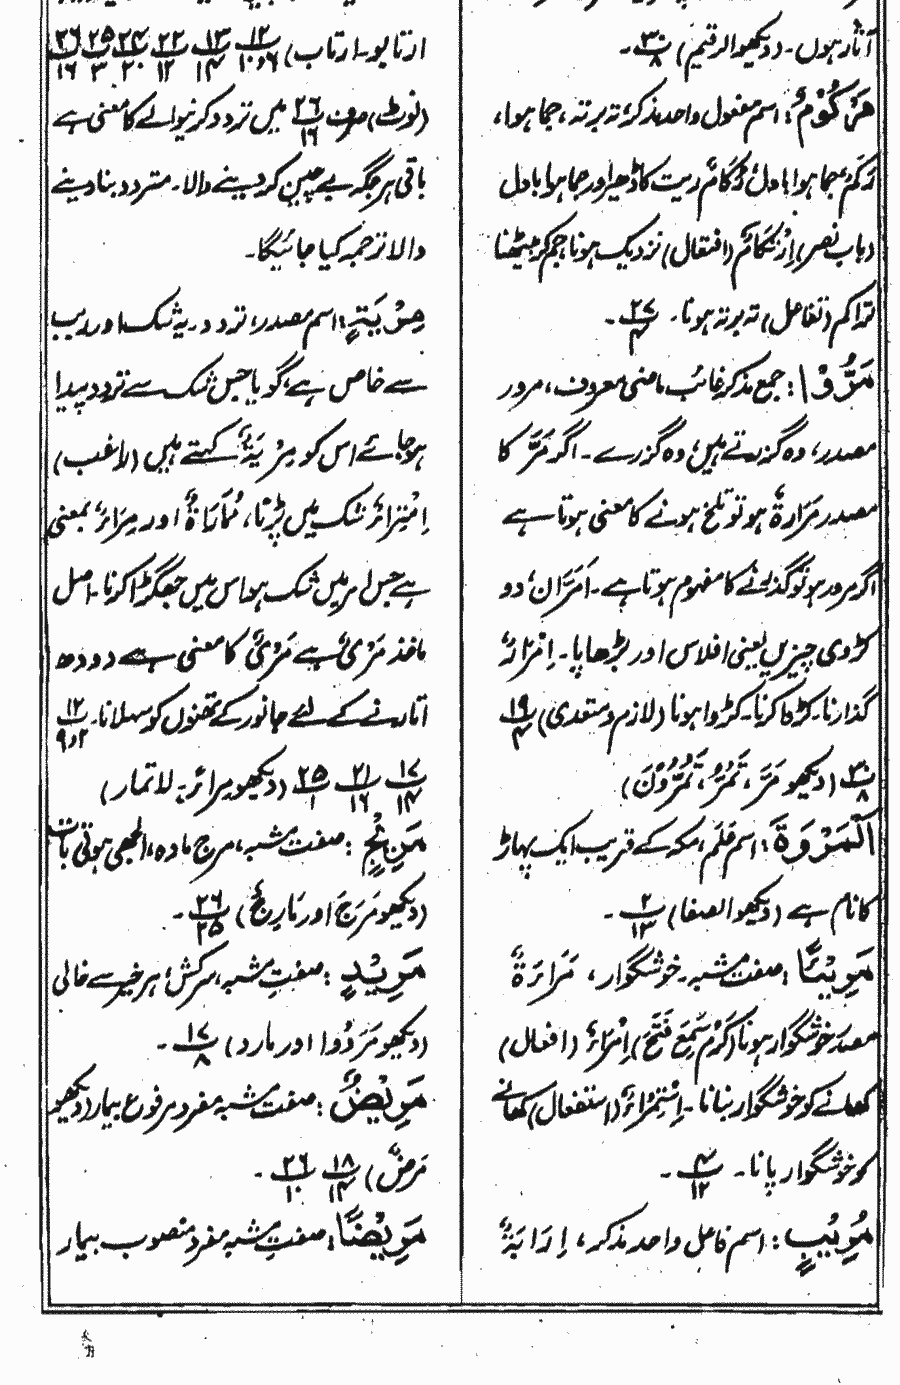 آثار ہوں۔ (دیکھو الرقیم) ۳۰/۸ ۔
مَرْكُوْمٌ : اسم مفعول واحد مذکر، تہ بر تہ، جما ہوا،
رُكَمٌ جما ہوا بادل، رُكَامٌ ریت کا ڈھیر اور جما ہوا بادل
(باب نصر) اِرْتِكَامٌ (افتعال) نزدیک ہونا جم کر بیٹھنا
تراکم (تفاعل) تہ بر تہ ہونا۔ ۲۷/۴ ۔
مَرُّوْا : جمع مذکر غائب ماضی معروف، مرور
مصدر، وہ گزرتے ہیں، وہ گزرے ۔ اگر مَرَّ کا
مصدر مَرَارَةٌ ہو تو تلخ ہونے کا معنی ہوتا ہے
اگر مرور ہو تو گذرنے کا مفہوم ہوتا ہے۔ اَمَرَّانِ دو
کڑوی چیزیں یعنی افلاس اور بڑھاپا۔ اِمْرَارٌ
گذارنا۔ کڑوا کرنا۔ کڑوا ہونا (لازم و متعدی) ۱۹/۴
۳۰/۸ (دیکھو مَرَّ، تَمُرُّ، تَمُرُّوْنَ)
اَلْمَرْوَةَ : اسم عَلَم، مکہ کے قریب ایک پہاڑ
کا نام ہے (دیکھو الصفا) ۲/۱۳ ۔
مَرِيْئًا : صفت مشبہ۔ خوشگوار، مَرَاءَةٌ
مصدر خوشگوار ہونا (كَرُمَ سَمِعَ فَتَحَ) اِمْرَاءٌ (افعال)
کھانے کو خوشگوار بنانا۔ اِسْتِمْرَاءٌ (استفعال) کھانے
کو خوشگوار پانا۔ ۴/۱۲ ۔
مُرِيْبٍ : اسم فاعل واحد مذکر، اِرَابَةٌ
ارتابو۔ ارتاب) ۱۲/۶و۱۰ ۱۳/۱۴ ۲۲/۱۲ ۲۴/۲۰ ۲۵/۳ ۲۶/۱۶
(نوٹ) صرف ۲۶/۱۶ میں تردد کرنیوالے کا معنی ہے
باقی ہر جگہ بے چین کر دینے والا۔ متردد بنا دینے
والا ترجمہ کیا جائیگا۔
مِرْيَةٍ : اسم مصدر، تردد۔ یہ شک اور ریب
سے خاص ہے، گویا جس شک سے تردد پیدا
ہو جائے اس کو مِرْيَةٌ کہتے ہیں (راغب)
اِمْتِرَاءٌ شک میں پڑنا، مُمَارَاةٌ اور مِرَاءٌ بمعنی
ہے جس امر میں شک ہو اس میں جھگڑا کرنا۔ اصل
ماخذ مَرْیٌ ہے مَرْیٌ کا معنی ہے دودھ
اتارنے کے لیے جانور کے تھنوں کو سہلانا۔ ۱۲/۲و۹
۱۷/۱۴ ۲۱/۱۶ ۲۵/۱ (دیکھو مراءً۔ لا تمار)
مَرِيْجٍ : صفت مشبہ، مرج مادہ، الجھی ہوئی بات
(دیکھو مَرَجَ اور مَارِجٌ) ۲۶/۲۵ ۔
مَرِيْدٍ : صفتِ مشبہ، سرکش، ہر خیر سے خالی
(دیکھو مَرَدُوا اور مارد) ۱۷/۸ ۔
مَرِيْضٌ : صفت مشبہ مفرد مرفوع بیمار (دیکھو
مَرَضٌ) ۱۸/۱۴ ۲۶/۱۰ ۔
مَرِيْضًا : صفتِ مشبہ مفرد منصوب بیمار